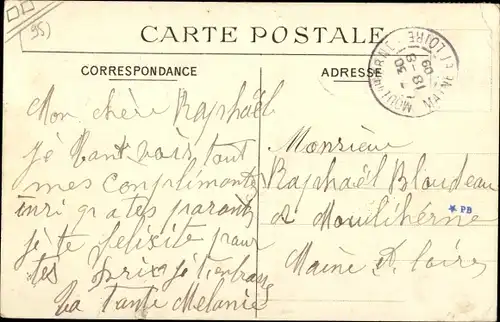 95)
CARTE POSTALE
CORRESPONDANCE
ADRESSE
MAINE ET LOIRE
18 - 8
09
Mon chère Raphaël
je tant vois tout
mes conplimonts
parants
je te felisite pour
tes prix je t'enbrass
ta tante Melanie
Monsieur
Raphaël Blondeau
a Moulihérne
* PB
Maine et Loire